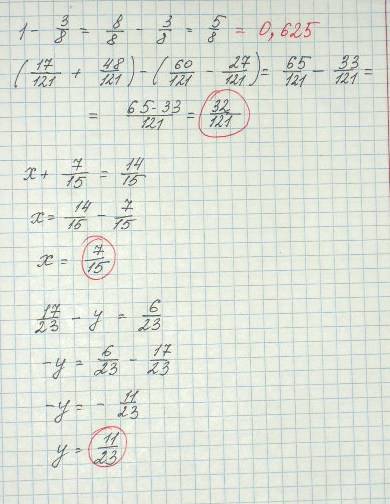 1 - 3/8 = 8/8 - 3/8 = 5/8 = 0,625
(17/121 + 48/121) - (60/121 - 27/121) = 65/121 - 33/121 =
= 65-33/121 = 32/121
x + 7/15 = 14/15
x = 14/15 - 7/15
x = 7/15
17/23 - y = 6/23
-y = 6/23 - 17/23
-y = - 11/23
y = 11/23